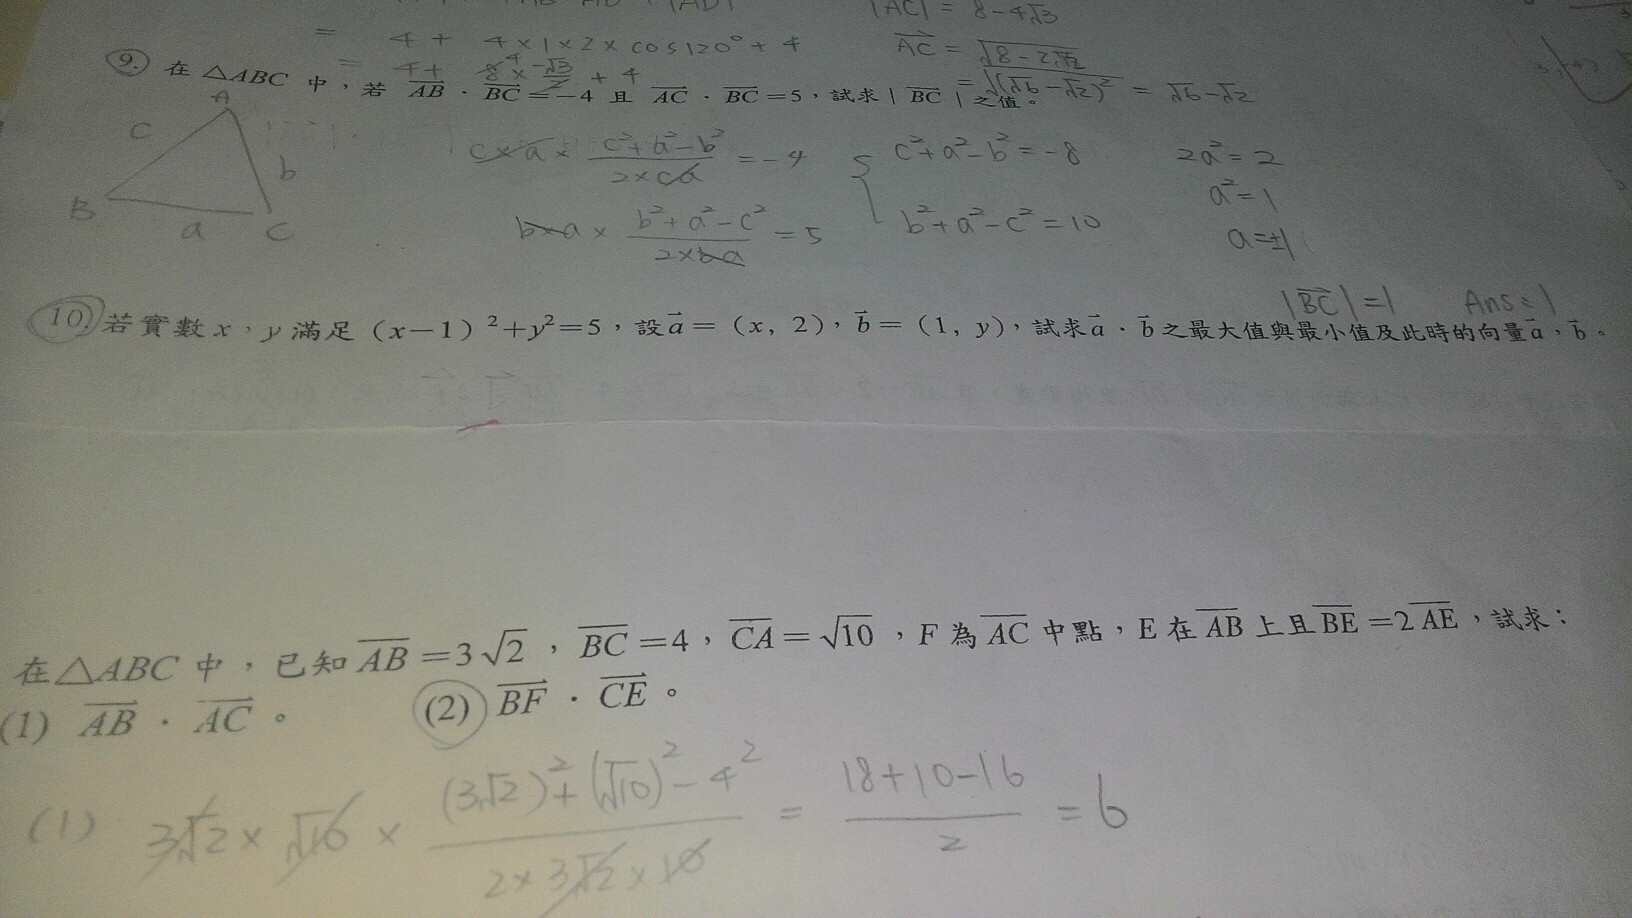 |AC| = 8-4√3
= 4 + 4×1×2×cos120° + 4
AC = √(8-2√12)
= 4+ 8⁴× -√3/2 + 4
= √(√6-√2)² = √6-√2
9. 在 △ABC 中，若 AB · BC =-4 且 AC · BC =5，試求 | BC | 之值。
A
C
b
B
a
C
c×a× (c²+a²-b²)/(2×ca) = -4
c²+a²-b²=-8
2a²=2
a²=1
b×a× (b²+a²-c²)/(2×ba) = 5
b²+a²-c²=10
a=±1
|BC|=1 Ans: 1
10. 若實數x，y滿足（x-1）²+y²=5，設a=（x, 2），b=（1, y），試求a · b之最大值與最小值及此時的向量a，b。
在△ABC 中，已知 AB =3√2，BC =4，CA =√10，F 為 AC 中點，E 在 AB 上且 BE =2 AE，試求：
(1) AB · AC。 (2) BF · CE。
(1) 3√2 × √10 × ((3√2)²+(√10)²-4²)/(2×3√2×10) = (18+10-16)/2 = 6